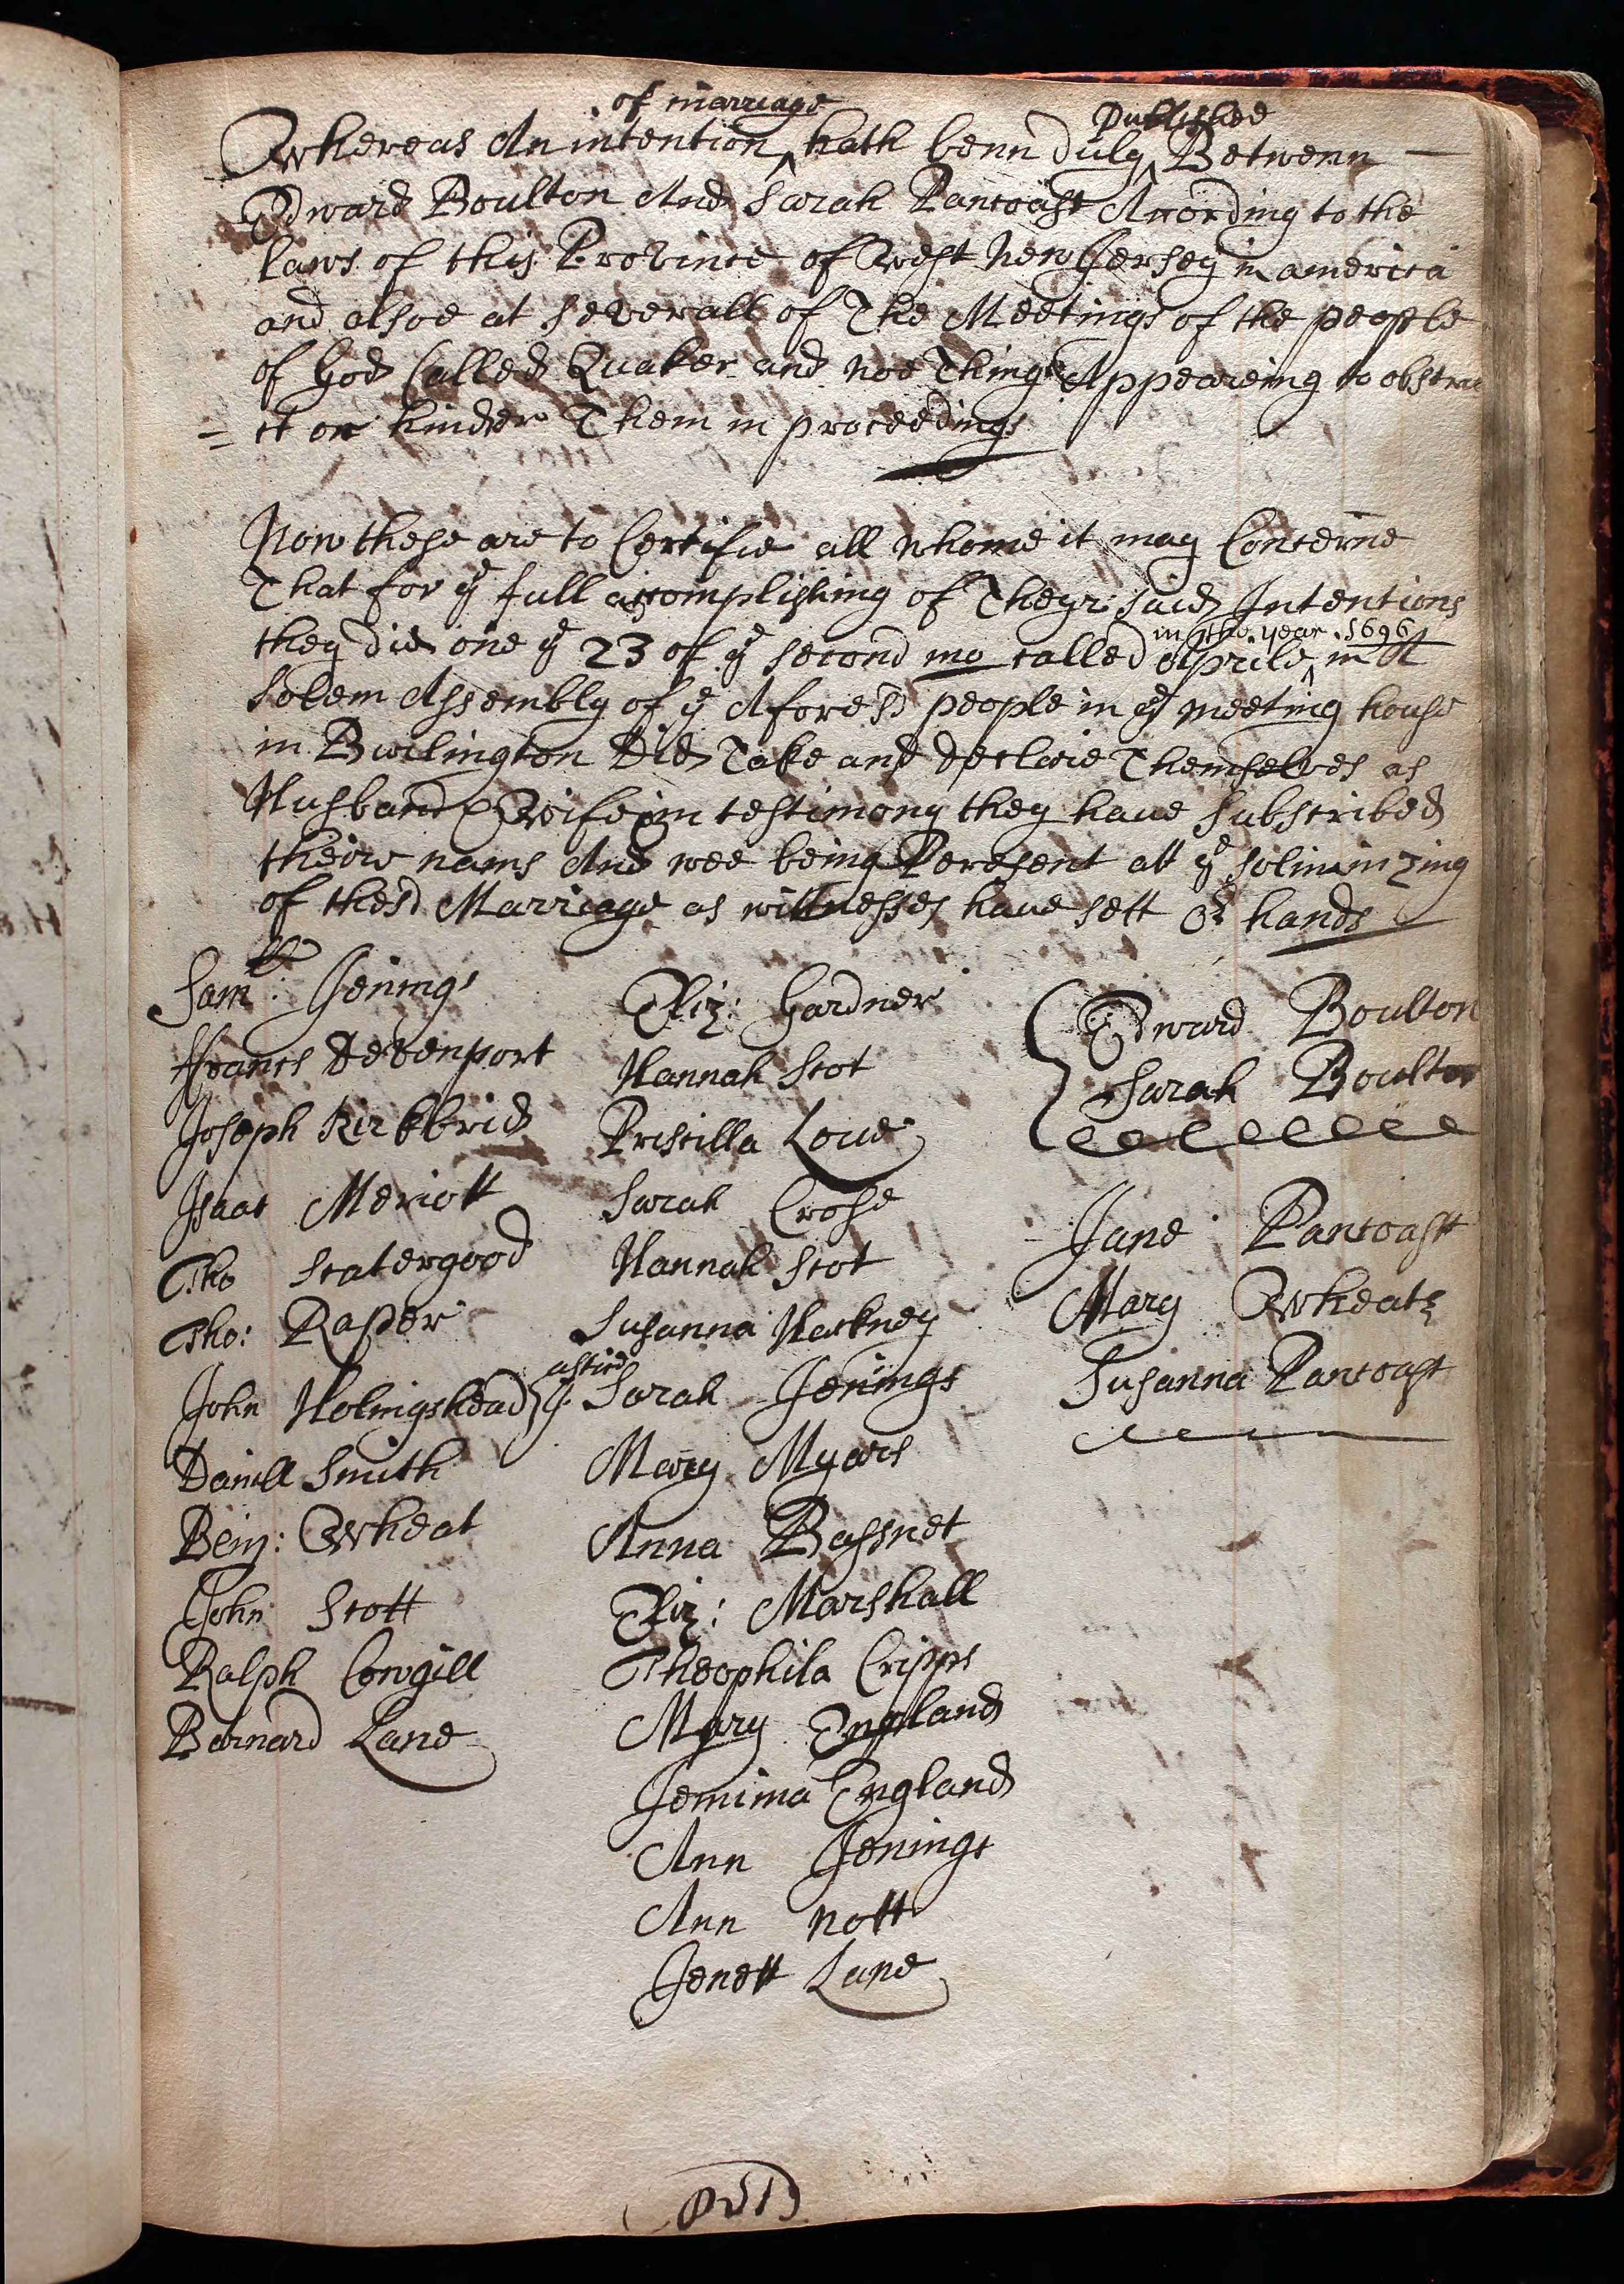 of marriage Published
Whereas An intention ^ hath benn duly ^ Betwenn
Edward Boulton And Sarah Pancoast Acording to the
laws of this Province of West New Jersey in america
and alsoe at severall of The Meetings of the people
of God Called Quaker and noe Things Appeareing to obstru
= ct or hinder Them in proceedings
Now these are to Certifie all whome it may Concerne
That for ye full accomplishing of Theyr said Intentions
in the year 1696
they did one ye 23 of ye second mo called Aprile ^ in A
Solem Assembly of ye Aforesd people in ye meeting house
in Burlington Did Take and declare Themselves as
Husband & Wife in testimony they have subscribed
their nams And wee being Peresent att ye soliminzing
of thesd Marriage as wittnesses have sett or hands
Samll: Jenings
Francs Devenport
Joseph Kirkbrid
Isaac Meriott
Tho Scatergood
Tho: Raper
John Holingshead
Daniell Smith
Benj: Wheat
John Scott
Ralph Cowgill
Bernard Lane
Eliz: Gardner
Hannah Scot
Priscilla Love
Sarah Crose
Hannah Scot
Susanna Hackney
Sarah Jenings
Mary Myars
Anna Bassnet
Eliz: Marshall
Theophila Cripps
Mary England
Jemima England
Ann Jenings
Ann nott
Jenett Lane
Edward Boulton
Sarah Boulton
Jane Pancoast
Mary Wheat
Susanna Pancoast